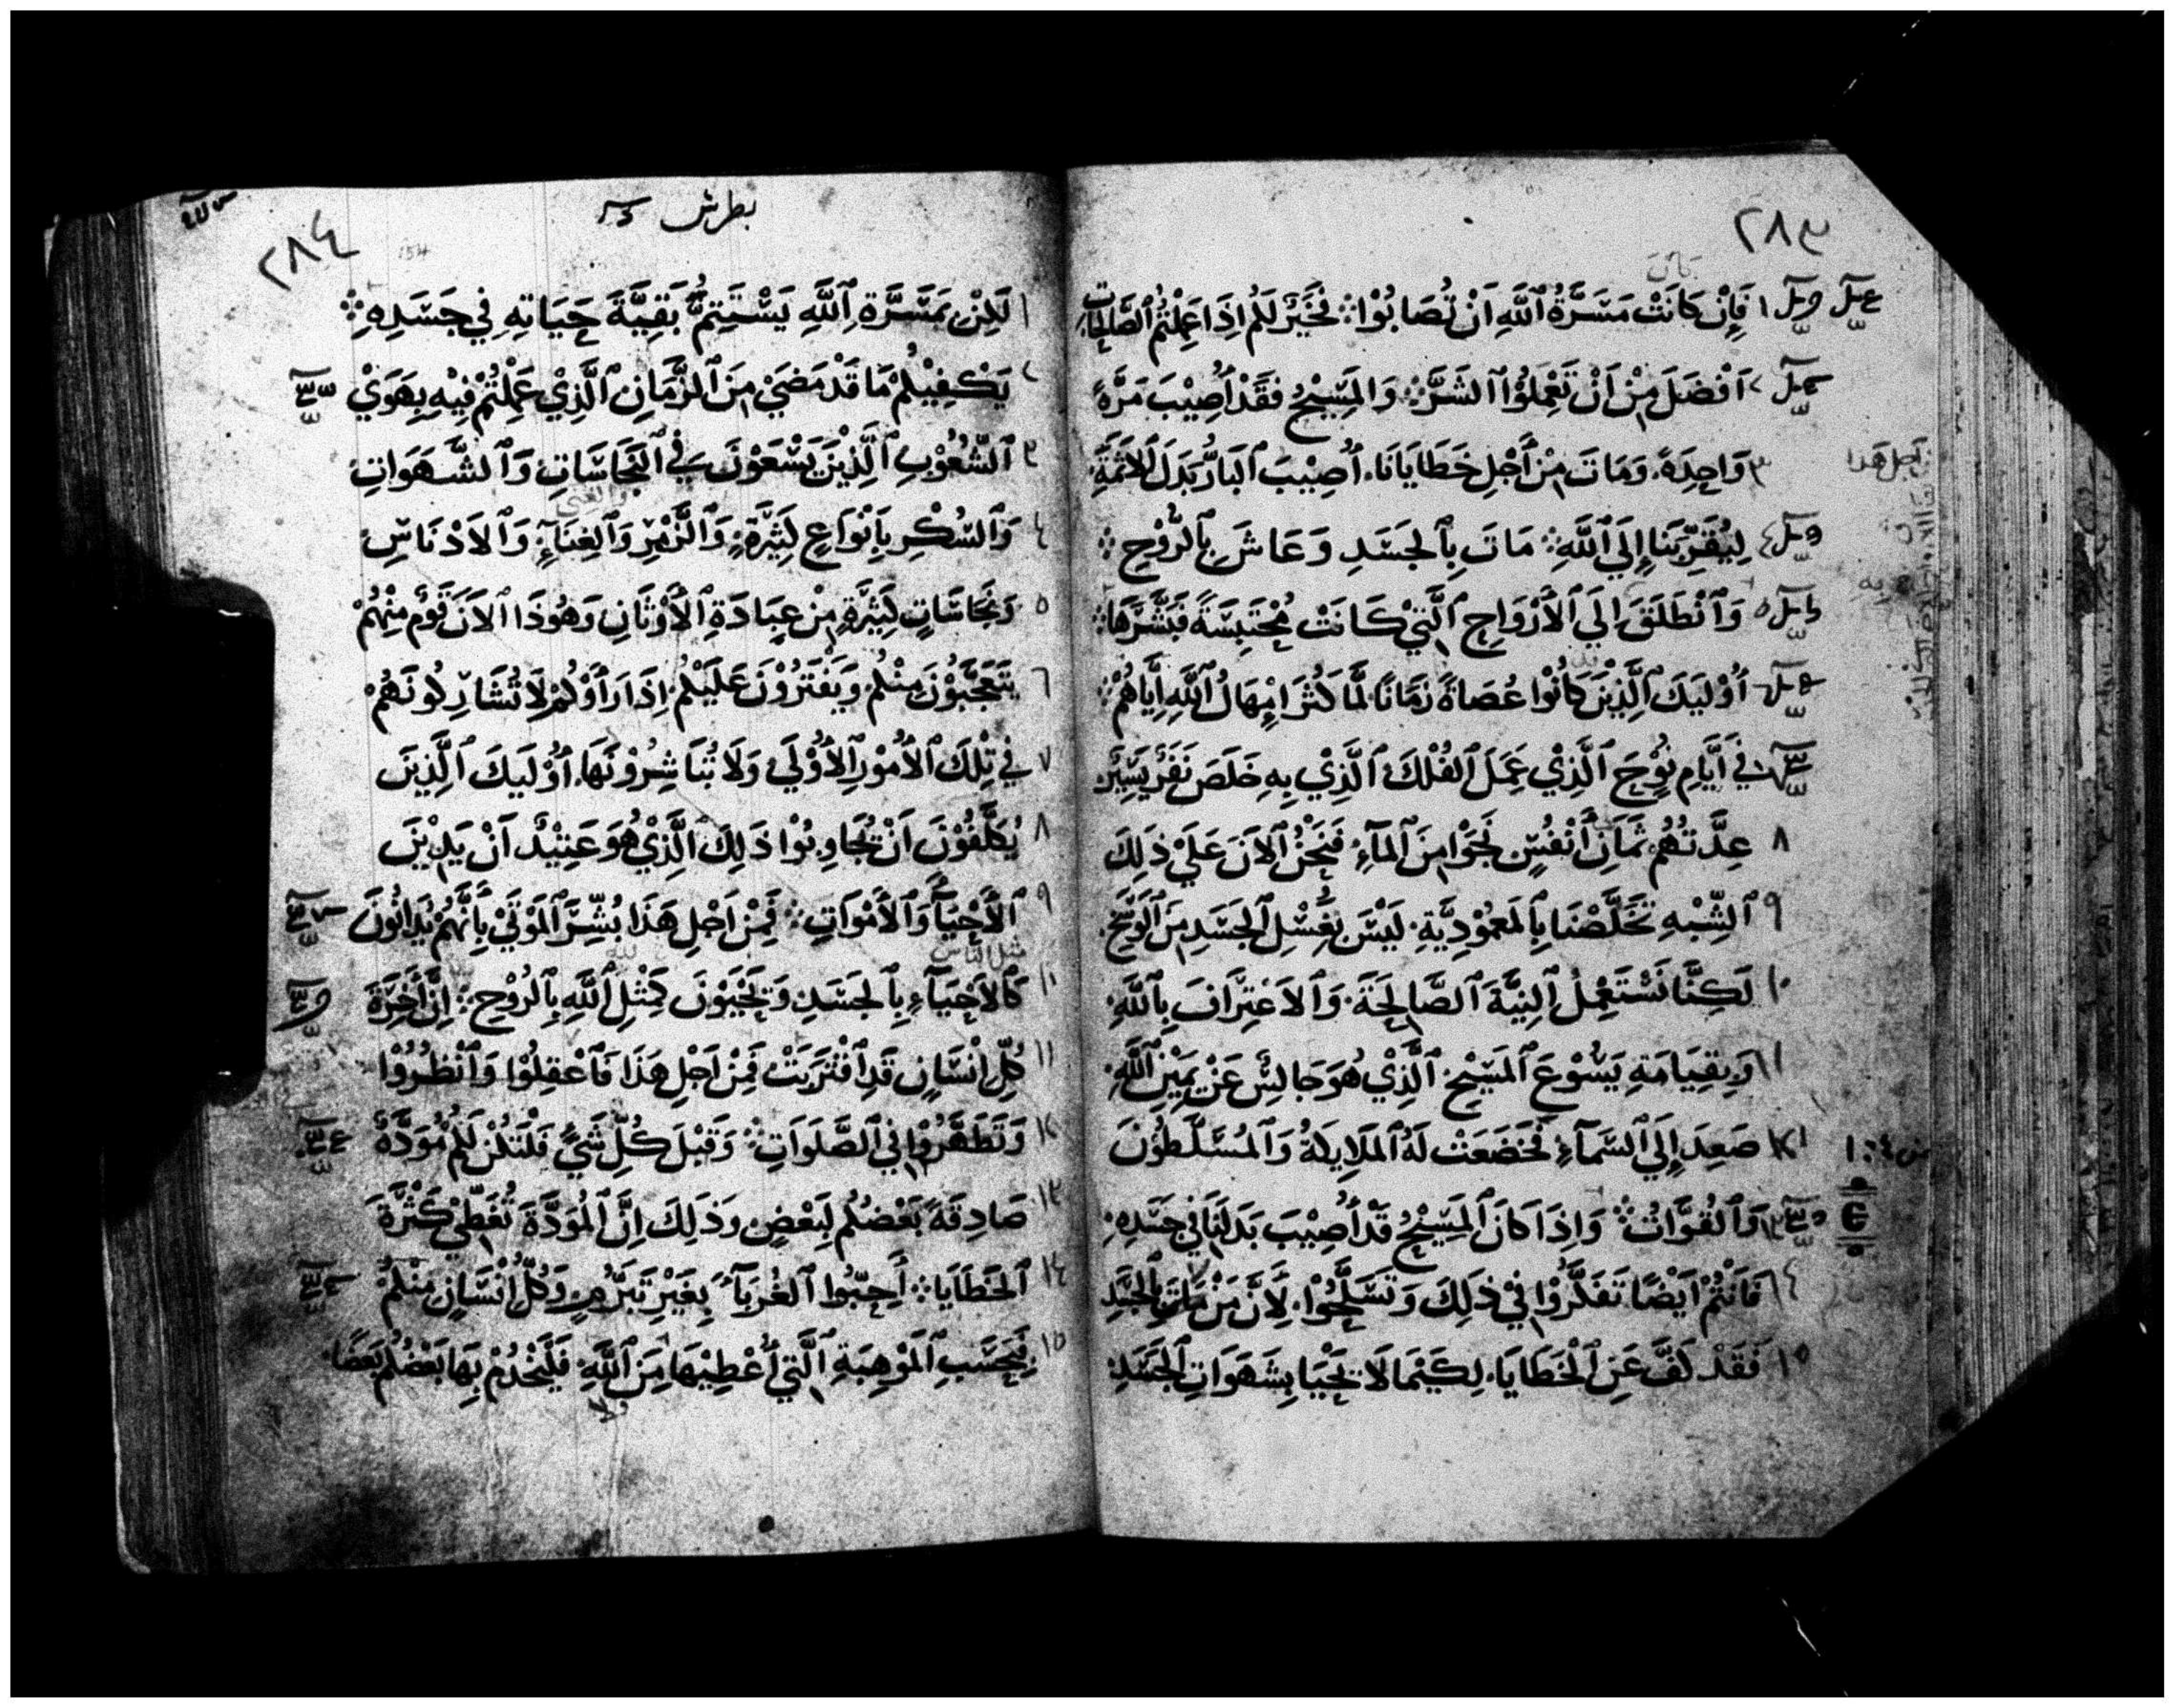 ٢٨٣
١ فَإِنْ كَانَتْ مَسَرَّةُ ٱللَّهِ اَنْ تُصَابُوْا ܀ فَخَيْرٌ لَكُمْ اِذَا عَمِلْتُمُ ٱلصَّالِحَاتِ
٢ اَفْضَلَ مِنْ اَنْ تَعْمَلُوْا ٱلشَرَّ ܀ وَالمَسِيْحُ فَقَدْ اُصِيْبَ مَرَّةً
٣ وَاحِدَةً. وَمَاتَ مِنْ أَجْلِ خَطَايَانَا. اُصِيْبَ ٱلبَارُّ بَدَلَ ٱلاَثَمَةِ
٤ لِيُقَرِّبَنَا إِلَي ٱللَّهِ ܀ مَاتَ بِٱلجَسَدِ وَعَاشَ بِٱلرُّوْحِ ܀
٥ وَٱنْطَلَقَ اِلَي ٱلأَرْوَاحِ ٱلَّتِيْ كَانَتْ مُحْتَبِسَةً فَبَشَّرَهَا ܀
٦ أُوْلَيِكَ ٱلَّذِيْنَ كَانُوْا عُصَاةً زَمَانًا لَمَّا كَثُرَ اِمْهَالُ ٱللَّهِ اِيَّاهُمْ ܀
٧ فِي أَيَّامِ نُوْحٍ ٱلَّذِيْ عَمِلَ ٱلفُلْكَ ٱلَّذِيْ بِهِ خَلَصَ نَفَرٌ يَسِيْرٌ
٨ عِدَّتُهُمْ ثَمَانِ أَنْفُسٍ نَجَوْا مِنَ ٱلمَآءِ. فَنَحْنُ ٱلاَنَ عَلَيْ ذَلِكَ
٩ ٱلشِّبْهِ تَخَلَّصْنَا بِٱلمَعْمُوْدِيَّةِ. لَيْسَ بِغَسْلِ ٱلجَسَدِ مِنَ ٱلوَسَخِ.
١٠ لَكِنَّا نَسْتَعْمِلُ ٱلنِيَّةَ ٱلصَّالِحَةَ. وَٱلاَعْتِرَافَ بِٱللَّهِ.
١١ وَبِقِيَامَةِ يَسُوْعَ ٱلمَسِيْحِ. ٱلَّذِيْ هُوَ جَالِسٌ عَنْ يَمِيْنِ ٱللَّهِ.
١٢ صَعِدَ إِلَي ٱلسَّمَآءِ فَخَضَعَتْ لَهُ ٱلمَلَايِكَةُ وَٱلمُسَلَّطُوْنَ
١٣ وَٱلقُوَّاتُ ܀ وَاِذَا كَانَ ٱلمَسِيْحُ قَدْ اُصِيْبَ بَدَلَنَا فِي جَسَدِهِ.
١٤ فَاَنْتُمْ اَيْضًا تَفَكَّرُوْا فِيْ ذَلِكَ وَتَسَلَّحُوْا. لَاَنَّ مَنْ مَاتَ بِٱلجَسَدِ
١٥ فَقَدْ كَفَّ عَنِ ٱلْخَطَايَا. لِكَيْمَا لَا يَحْيَا بِشَهَوَاتِ ٱلجَسَدِ.
بطرس
٢٨٤
١ لَكِنْ بِمَسَرَّةِ ٱللَّهِ يَسْتَتِمُّ بَقِيَّةَ حَيَاتِهِ فِي جَسَدِهِ ܀
٢ يَكْفِيْكُمْ مَا قَدْ مَضَيْ مِنَ ٱلزَّمَانِ ٱلَّذِيْ عَمِلْتُمْ فِيْهِ بِهَوَيْ
٣ ٱلشُّعُوْبِ ٱلَّذِيْنَ يَسْعَوْنَ فِي ٱلنَّجَاسَاتِ وَٱلشَّهَوَاتِ
٤ وَٱلسُّكْرِ بِاَنْوَاعٍ كَثِيْرَةٍ. وَٱلزَّمْرِ وَٱلغِنَآءِ. وَٱلاَدْنَاسِ
٥ وَنَجَاسَاتٍ كَثِيْرَةٍ مِنْ عِبَادَةِ ٱلأَوْثَانِ وَهُوَذَا ٱلاَنَ قَوْمٌ مِنْهُمْ
٦ يَتَعَجَّبُوْنَ مِنْكُمْ وَيَفْتَرُوْنَ عَلَيْكُمْ. اِذَا رَأَوْكُمْ لَا تُشَارِكُونَهُمْ
٧ فِي تِلْكَ ٱلأُمُوْرِ ٱلأُوْلَي وَلَا تُبَاشِرُوْنَهَا. اُوْلَيِكَ ٱلَّذِيْنَ
٨ يُكَلَّفُوْنَ اَنْ يُجَاوِبُوْا ذَلِكَ ٱلَّذِيْ هُوَ عَتِيْدٌ اَنْ يَدِيْنَ
٩ ٱلأَحْيَآءَ وَٱلأَمْوَاتِ ܀ فَمِنْ اَجْلِ هَذَا بُشِّرَ ٱلمَوْتَيْ بِأَنَّهُمْ يُدَانُونَ
مثل الناس
١٠ كَٱلاَحْيَآءِ بِٱلجَسَدِ وَيَحْيَوْنَ كَمِثْلِ ٱللَّهِ بِٱلرُوْحِ ܀ اِنَّ اَخِرَةَ
١١ كُلِّ اِنْسَانٍ قَدِ ٱقْتَرَبَتْ فَمِنْ اَجْلِ هَذَا فَٱعْقِلُوْا وَٱنْظُرُوْا
١٢ وَتَطَهَّرُوْا فِي ٱلصَّلَوَاتِ ܀ وَقَبْلَ كُلِّ شَيْءٍ فَلْتَكُنْ لَكُمْ مُوَدَّةٌ
١٣ صَادِقَةً بَعْضُكُمْ لِبَعْضٍ وَذَلِكَ اِنَّ ٱلمُوَدَّةَ تُغَطِّيْ كَثْرَةَ
١٤ ٱلخَطَايَا ܀ أَحِبُّوا ٱلغُرَبَآءَ بِغَيْرِ تَبَرُّمٍ وَكُلُّ اِنْسَانٍ مِنْكُمْ
١٥ فَبِحَسَبِ ٱلمَوْهِبَةِ ٱلَّتِيْ أُعْطِيْهَا مِنَ ٱللَّهِ. فَلْيَخْدُمْ بِهَا بَعْضُكُمْ بَعْضًا.